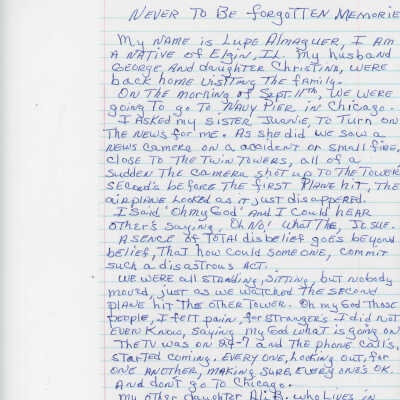 NEVER TO BE forgotten MEMORIE
My NAME is Lupe Almaguer, I AM
A NATIVE of Elgin, IL. My husband
GEORGE AND daughter Christina, WERE
back home visiting the family.
ON THE MORNING of Sept. 11th, WE WERE
going To go To NAVY PIER in Chicago.
I ASKED my sister Juanie, To Turn on
THE NEWS for me. As she did we saw a
NEWS CAMERA ON A accident or small fire,
close To THE Twin Towers, all of a
sudden THE camera shot up To THE Tower
SECONDS before THE first PLANE hit, THE
AIRPLANE LOOKED as if just disappeared.
I said 'Oh my God' AND I could HEAR
OTHER'S saying, Oh No! What THE, JESUE.
A SENCE of TOTAL disbelief goes beyond
belief, THAT how could some one, commit
such a disastrous ACT.
WE WERE all STANDING, SITTING, but Nobody
moved, just as we watched THE second
plane hit THE OTHER TOWER. Oh my God THOSE
people, I felt pain, for strangers I did NOT
EVEN KNOW, saying my God what is going on
THE TV was on 24-7 AND THE phone call's,
STARTED coming. EVERY ONE, looking out, for
ONE ANOTHER, making SURE, EVERY ONE'S OK.
And don't go To Chicago.
My OTHER daughter Ali B. who Lives in